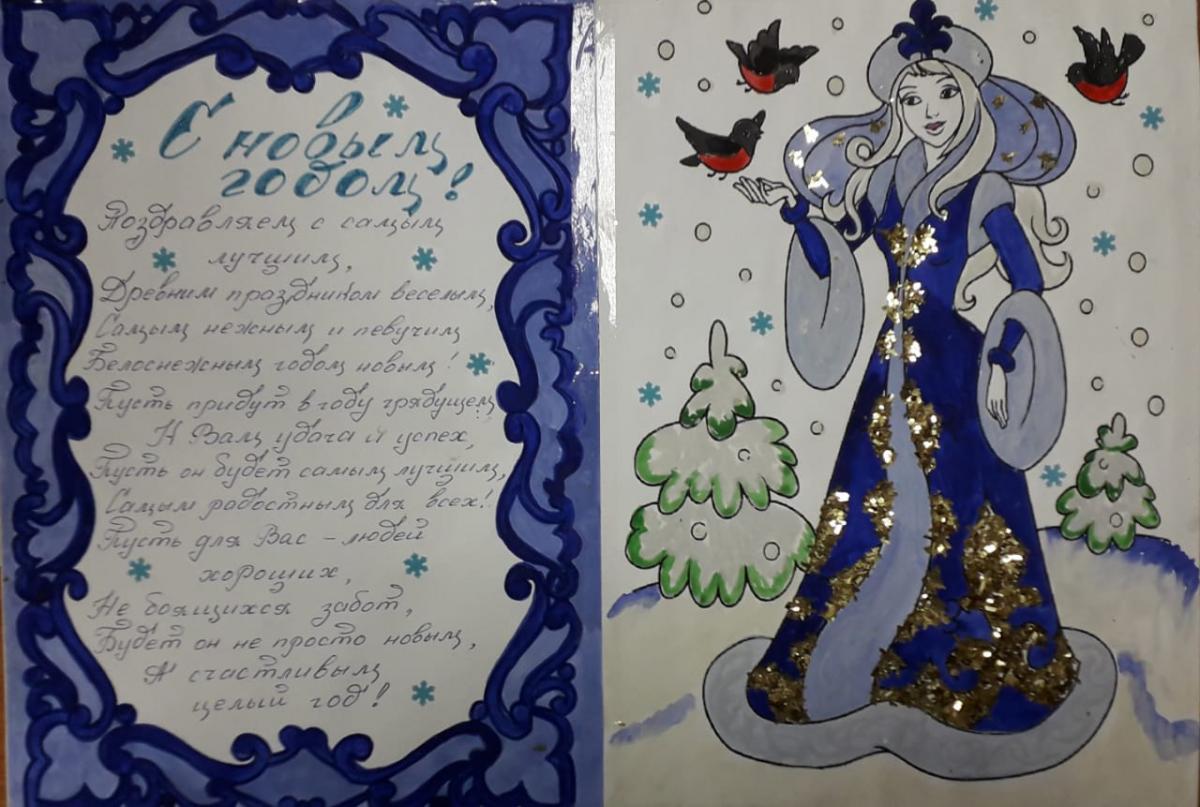 С новым
годом!
Поздравляем с самым
лучшим,
Древним праздником веселым,
Самым нежным и певучим
Белоснежным годом новым!
Пусть придут в году грядущем
К Вам удача и успех,
Пусть он будет самым лучшим,
Самым радостным для всех!
Пусть для Вас – людей
хороших,
Не боящихся забот,
Будет он не просто новым,
А счастливым
целый год!